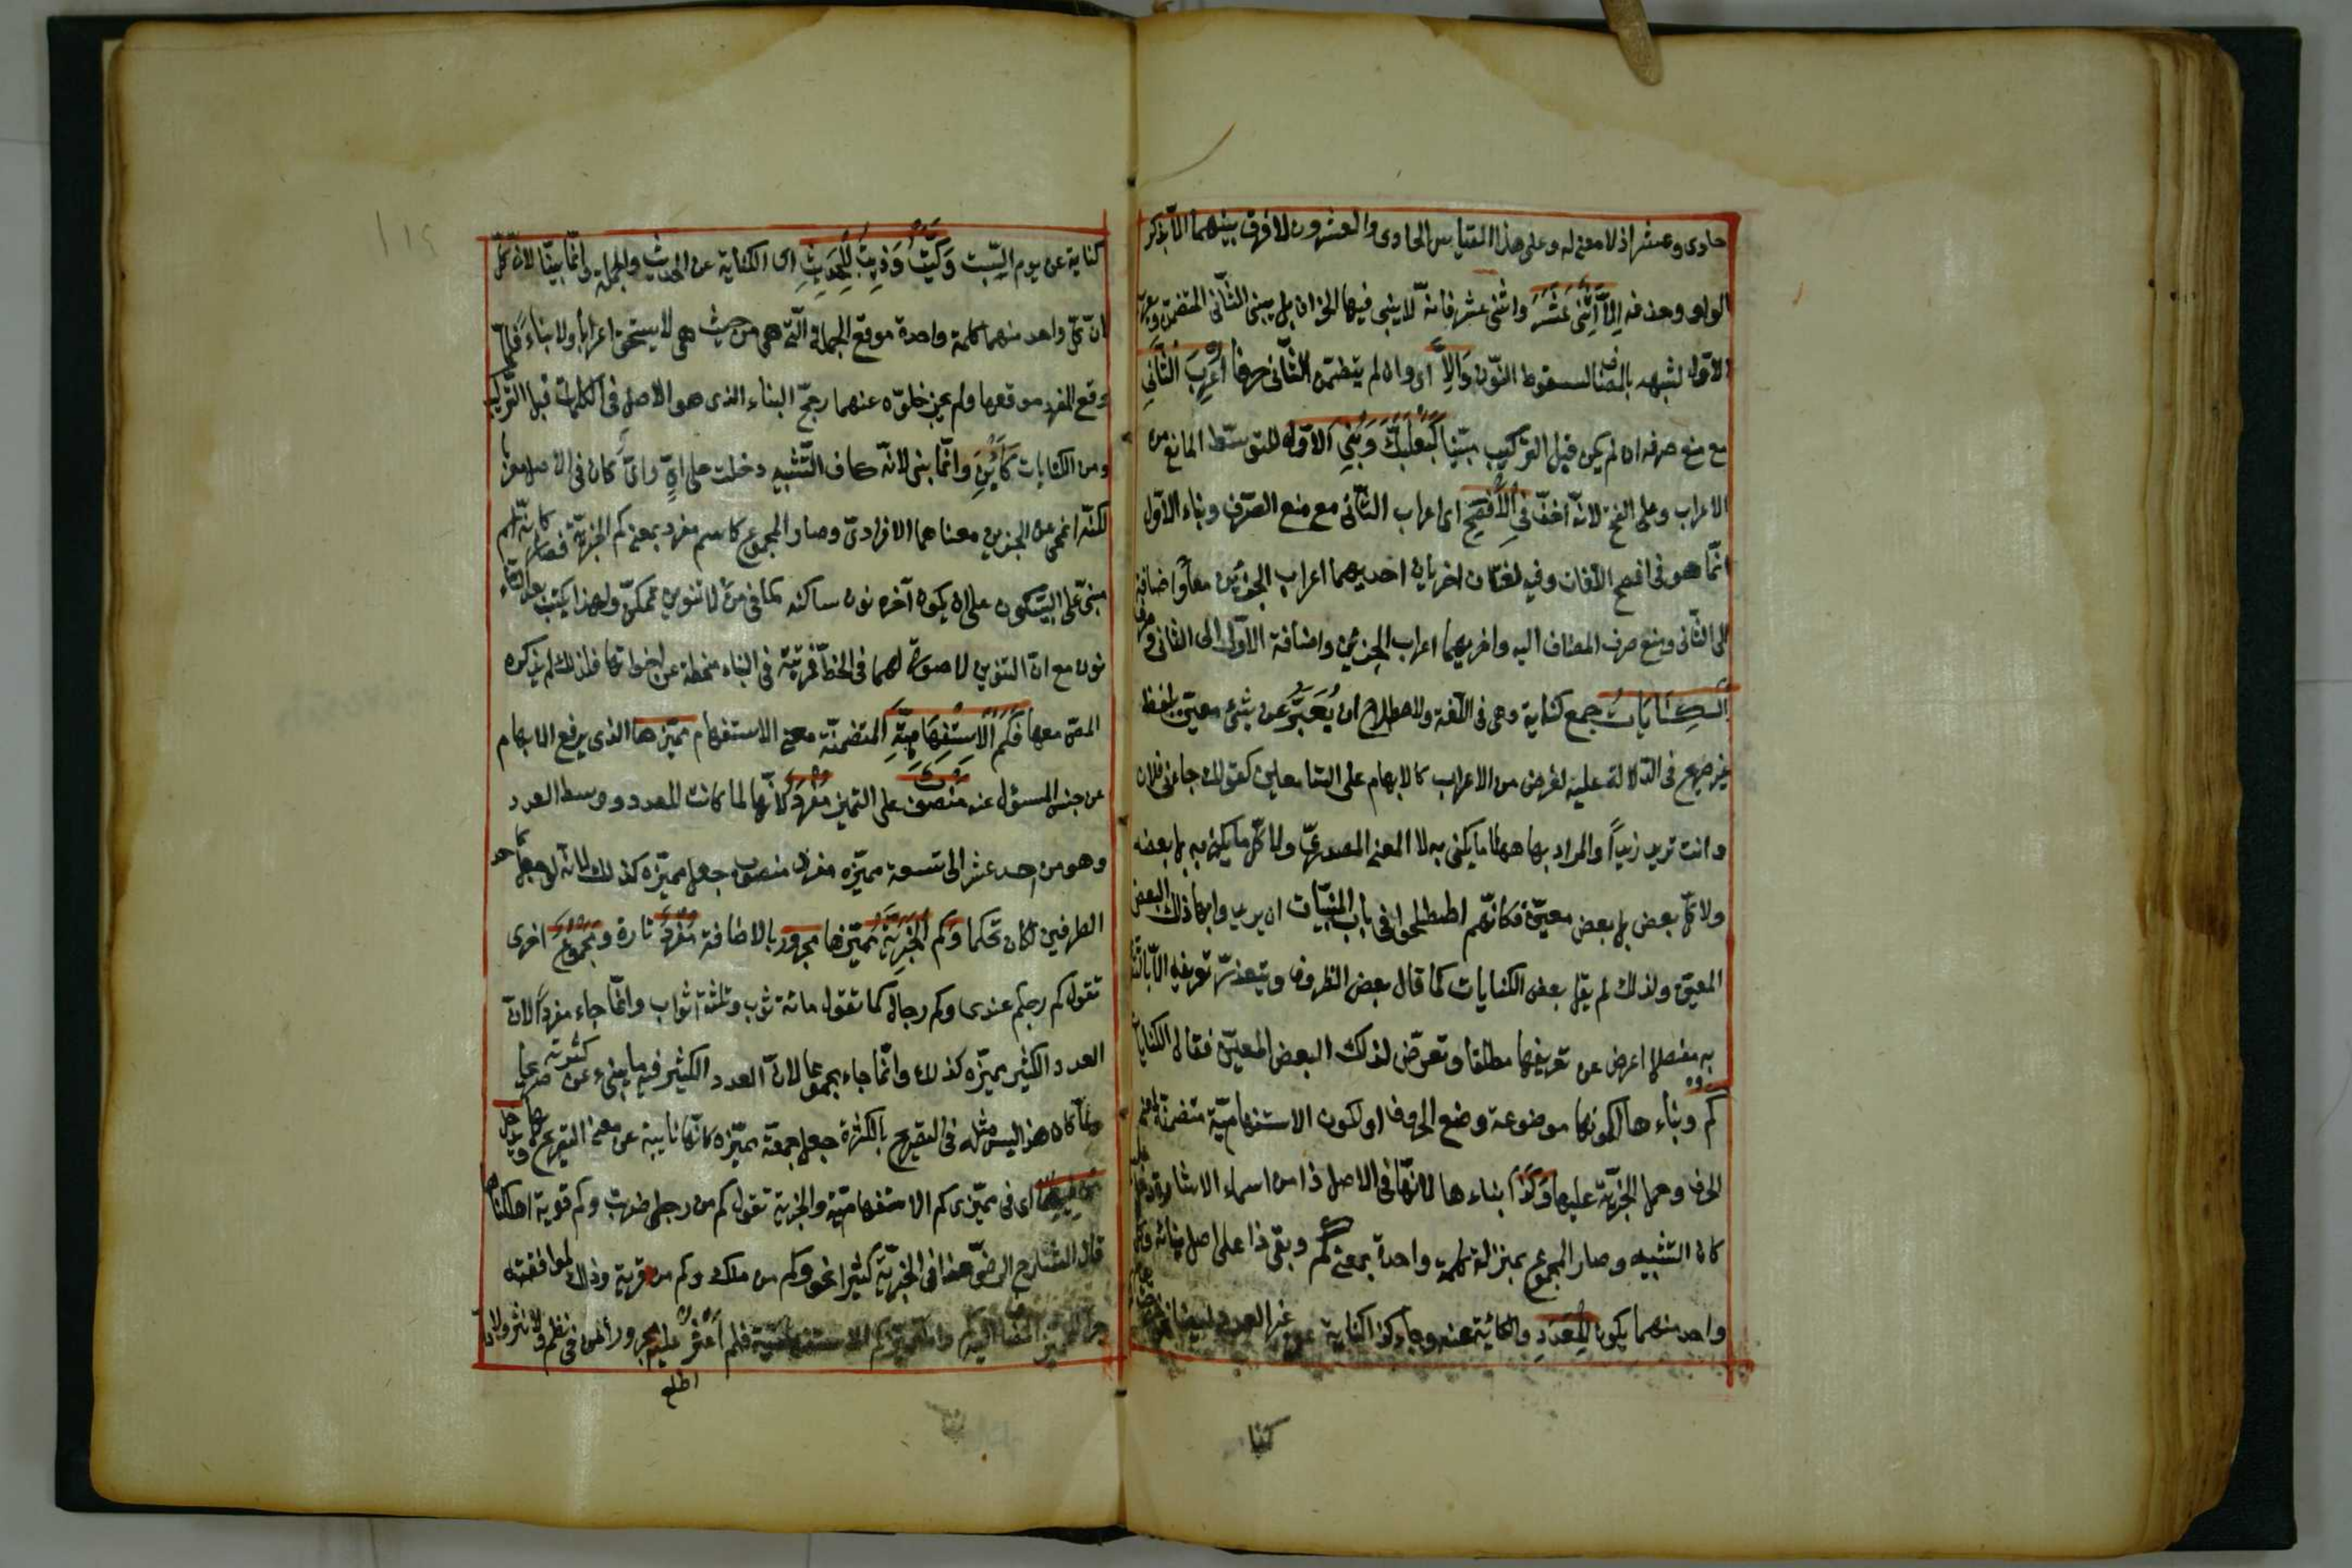 حادى وعشر اذ لا معنى له وعلى هذا القياس الحادى والعشرون لا فرق بينهما الا بذكر
الواو وحذفه اِلاَّ اِثْنَىْ عَشَرَ واثنى عشر فانه لا يبنى فيها الجزآن بل يبنى الثانى المتضمن ويعرب
الاول لشبهه بالمضاف لسقوط النون وَاِلاَّ اى وان لم يتضمن الثانى حرفا اُعْرِبَ الثَّانِى
مع منع صرفه ان لم يكن قبل التركيب مبنيا كَبَعْلَبَكَّ وَبُنِىَ الاوّل للتوسط المانع من
الاعراب وعلى الفتح لانه اخف فِى الْاَفْصَحِ اى اعراب الثانى مع منع الصرف وبناء الاول
انما هو فى افصح اللغات وفيه لغتان اخريان احديهما اعراب الجزئين معا واضافة
الى الثانى ومنع صرف المضاف اليه واخريهما اعراب الجزئين واضافة الاول الى الثانى وصرف
اَلْكِنَايَاتُ جمع كناية وهى فى اللغة والاصطلاح ان يُعَبَّرَ عن شئ معين بلفظ
غير صريح فى الدلالة عليه لغرض من الاعراب كالابهام على السامعين كقولك جاءنى فلان
وانت تريد زيداً والمراد بها ههنا ما يكنى به لا المعنى المصدرى ولا كل ما يكنى به بل بعضه
ولا كل بعض بل بعض معين فكانهم اصطلحوا فى باب المبنيات ان يريدوا بها ذلك البعض
المعين ولذلك لم يقل بعض الكنايات كما قال بعض الظروف ويتعذر تعريفه الا بالتصريح
به مفصلا اعرض عن تعريفها مطلقا وتعرض لذلك البعض المعين فقال الكنايات
كم وبناءها لكونها موضوعة وضع الحروف او لكون الاستفهامية متضمنة لمعنى
الحرف وحمل الخبرية عليها وَكَذَا بناءها لانها فى الاصل ذا من اسماء الاشارة دخل
كاف التشبيه وصار المجموع بمنزلة كلمة واحدة بمعنى كم وبقى ذا على اصل بنائه وكل
واحد منهما يكون لِلْعَدَدِ والكناية عنه وجاء كذا كناية عن غير العدد ايضا
كنا
كناية عن يوم السبت وَكَيْتَ وَذَيْتَ لِلْحَدِيثِ اى الكناية عن الحديث والجملة انما بنيا لان كل
ان كل واحد منهما كلمة واحدة موقع الجملة التى هى من حيث هى لا يستحق اعرابا ولا بناء فلما
وقع المفرد موقعها ولم يجز خلوه عنهما رجح البناء الذى هو الاصل فى الكلمات قبل التركيب
ومن الكنايات كَاَيِّنْ وانما بنى لانه كاف التشبيه دخلت على اىّ واىّ كان فى الاصل معربا
لكنه انمحى عن الجزئين معناهما الافرادى وصار المجموع كاسم مفرد بمعنى كم الخبرية فصار كانه اسم
مبنى على السكون على ان يكون آخره نون ساكنة كما فى من لا تنوين تمكن ولهذا يكتب بعد الياء
نون مع ان التنوين لا صورة لها فى الخط فمرتبته فى البناء منحطة عن اخواتها فلذلك لم يذكره
المص معها فَكَمْ الاِسْتِفْهَامِيَّةِ المتضمنة معنى الاستفهام مميزها الذى يرفع الابهام
عن جنس المسئول عنه منصوب على التميز مُفْرَدٌ لانها لما كانت للعدد ووسط العدد
وهو من احد عشر الى تسعة مميزه مفرد منصوب جعل مميزه كذلك لانه لو جعل كاحد
الطرفين لكان تحكما وَكَم الْخَبَرِيَّةِ مميزها مجرور بالاضافة مُفْرَدٌ تارة وَمَجْمُوعٌ اخرى
تقول كم رجلٍ عندى وكم رجالٍ كما تقول مائة ثوب وثلثة اثواب وانما جاء مفرداً لان
العدد الكثير مميزه كذلك وانما جاء مجموعا لان العدد الكثير فيه ما ينبئ عن كثرته صريحا
ولما كان هذا ليس مثله فى التصريح بالكثرة جعل جمعية مميزه كانها نائبة عن معنى التصريح بها ويدخل
مِن فِيهِمَا اى فى مميزى كم الاستفهامية والخبرية تقول كم من رجل ضربت وكم قرية اهلكناها
قال الشارح الرضى هذا فى الخبرية كثير نحو وكم من ملك وكم من قرية وذلك لموافقته
جر المميز المضاف اليه كم واما مميز كم الاستفهامية فلم اعثر عليه مجرورا بمن فى نظم ولا نثر ولا
اطلع